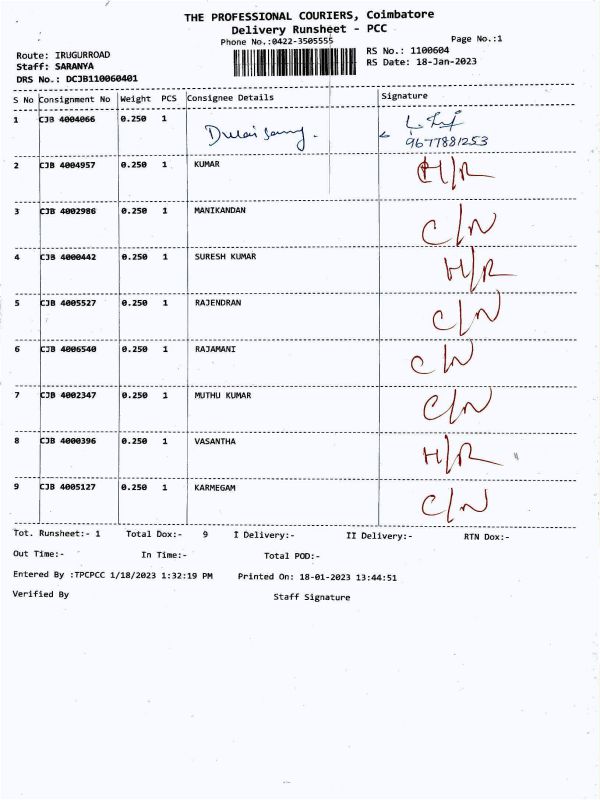 THE PROFESSIONAL COURIERS, Coimbatore
Delivery Runsheet - PCC
Phone No.:0422-3505555
Page No.:1
Route: IRUGURROAD
RS No.: 1100604
Staff: SARANYA
RS Date: 18-Jan-2023
DRS No.: DCJB110060401
S No Consignment No Weight PCS Consignee Details Signature
1 CJB 4004066 0.250 1
9677881253
2 CJB 4004957 0.250 1 KUMAR H/R
3 CJB 4002986 0.250 1 MANIKANDAN C/N
4 CJB 4000442 0.250 1 SURESH KUMAR H/R
5 CJB 4005527 0.250 1 RAJENDRAN C/N
6 CJB 4006540 0.250 1 RAJAMANI C/N
7 CJB 4002347 0.250 1 MUTHU KUMAR C/N
8 CJB 4000396 0.250 1 VASANTHA H/R
9 CJB 4005127 0.250 1 KARMEGAM C/N
Tot. Runsheet:- 1 Total Dox:- 9 I Delivery:- II Delivery:- RTN Dox:-
Out Time:- In Time:- Total POD:-
Entered By :TPCPCC 1/18/2023 1:32:19 PM Printed On: 18-01-2023 13:44:51
Verified By Staff Signature